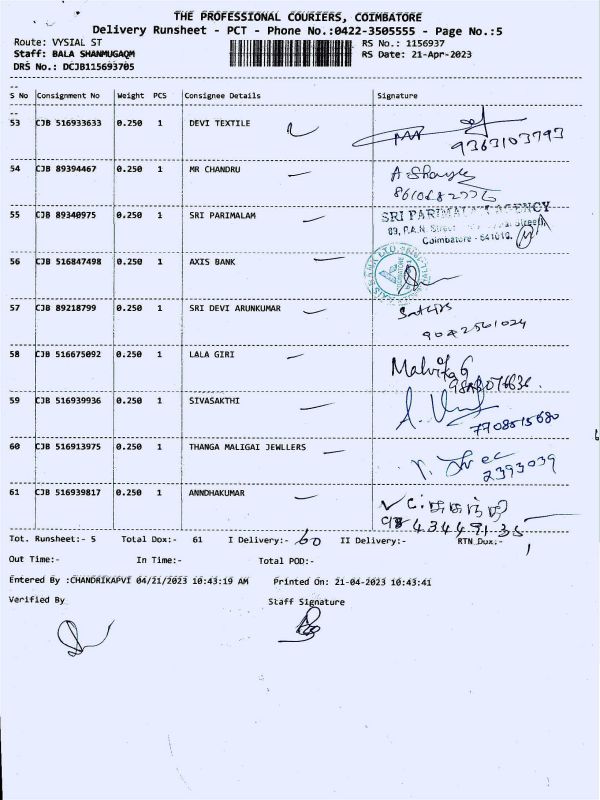 THE PROFESSIONAL COURIERS, COIMBATORE
Delivery Runsheet - PCT - Phone No.:0422-3505555 - Page No.:5
Route: VYSIAL ST
RS No.: 1156937
Staff: BALA SHANMUGAQM
RS Date: 21-Apr-2023
DRS No.: DCJB115693705
S No Consignment No Weight PCS Consignee Details Signature
53 CJB 516933633 0.250 1 DEVI TEXTILE
9363103793
54 CJB 89394467 0.250 1 MR CHANDRU
55 CJB 89340975 0.250 1 SRI PARIMALAM
SRI PARIMALA AGENCY
Coimbatore - 641019.
56 CJB 516847498 0.250 1 AXIS BANK
57 CJB 89218799 0.250 1 SRI DEVI ARUNKUMAR
9042561024
58 CJB 516675092 0.250 1 LALA GIRI
Malvika G
59 CJB 516939936 0.250 1 SIVASAKTHI
7708515680
60 CJB 516913975 0.250 1 THANGA MALIGAI JEWLLERS
2393039
61 CJB 516939817 0.250 1 ANNDHAKUMAR
Tot. Runsheet:- 5 Total Dox:- 61 I Delivery:- 60 II Delivery:- RTN Dox:- 1
Out Time:- In Time:- Total POD:-
Entered By :CHANDRIKAPVI 04/21/2023 10:43:19 AM Printed On: 21-04-2023 10:43:41
Verified By Staff Signature